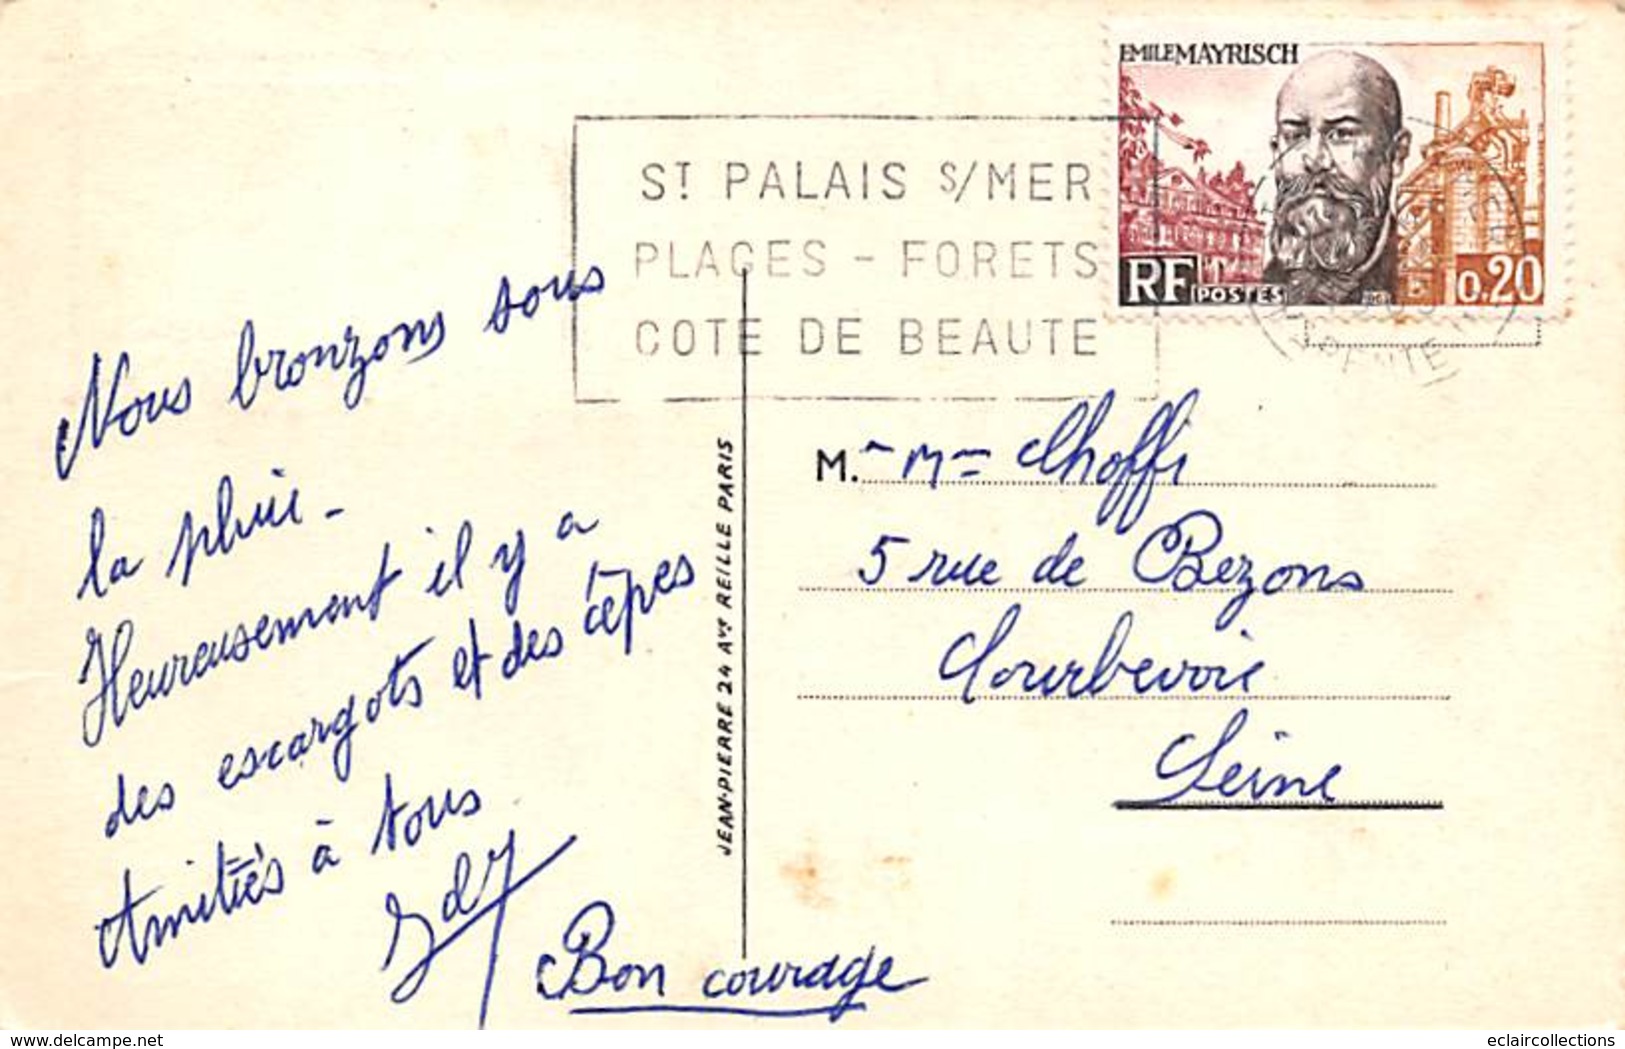 EMILE MAYRISCH
RF POSTES 0,20
ST PALAIS S/MER
PLAGES - FORETS
COTE DE BEAUTE
Nous bronzons sous
la pluie -
Heureusement il y a
des escargots et des cêpes
Amitiés à tous
Bon courage
JEAN-PIERRE 24 AVE REILLE PARIS
M. - Mme Choffi
5 rue de Bezons
Courbevoie
Seine
www.delcampe.net
eclaircollections